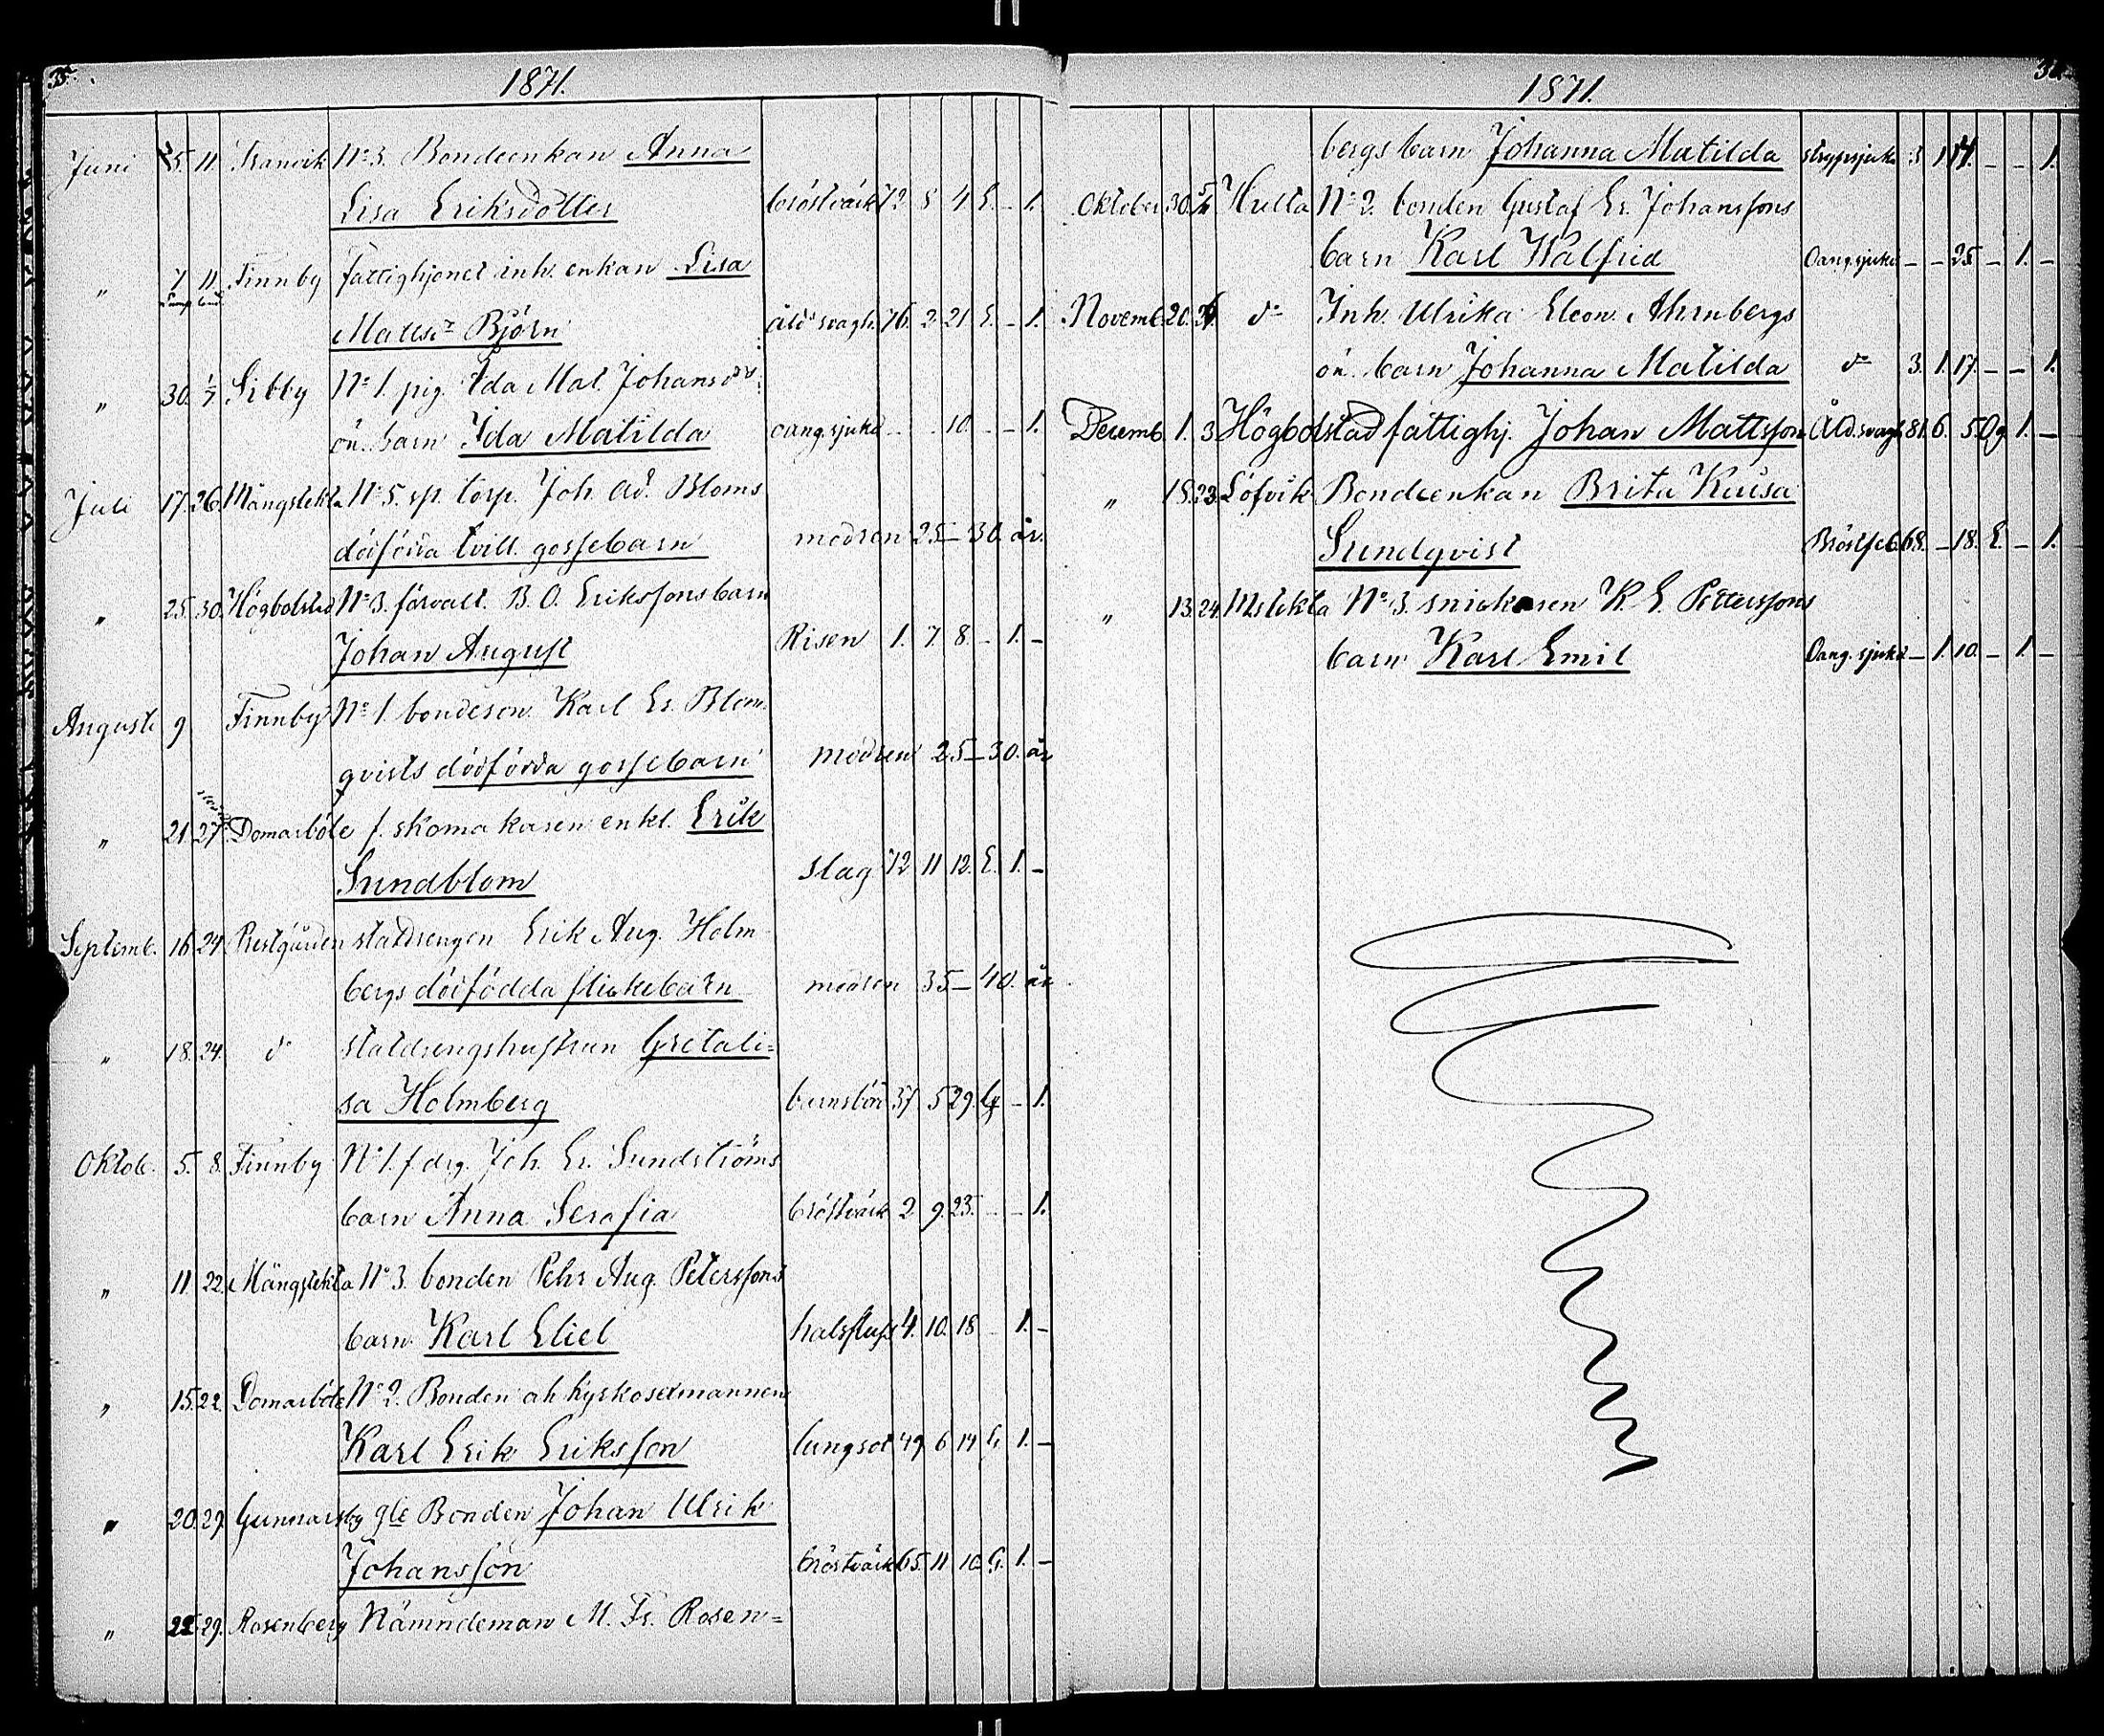 35.
1871.
Juni 5. 11. Tranvik No 3. Bondeenkan Anna
Lisa Eriksdotter bröstvärk 72. 8 4. E. – 1.
" 7 11 Finnby fattighjonet inh. enkan Lisa
Mattsdr Björn åld.svagh. 76. 2. 21. E. – 1.
" 30. 1/7 Sibby No 1. pig. Ida Mat. Johansdrs
oä. barn Ida Matilda oang. sjukd – – 10. – – 1.
Juli 17. 26. Mångstekta No 5. sp. torp. Joh. Ad. Bloms
dödfödda tvill. gossebarn modren 25 – 30. år.
" 25. 30. Högbolstad No 3. förvalt. B. O. Erikssons barn
Johan August Risen 1. 7. 8. – 1. –
Augusti 9 Finnby No 1. bondeson. Karl Er. Blom
qvists dödfödda gossebarn modren 25 – 30. år
" 21. 27. Domarböte f. skomakaren enkl. Erik
Sundblom slag 72 11 12. E. 1. –
Septemb. 16. 24. Prestgården statdrengen Erik Aug. Holm
bergs dödfödda flickebarn modren 35 – 40. år
" 18. 24. do statdrengshustrun Gretali=
sa Holmberg barnsbörd 37. 5 29. G. – 1.
Oktob. 5. 8. Finnby No 1. f drg. Joh. Er. Sundströms
barn Anna Serafia bröstvärk 2. 9. 23. – – 1.
" 11 22. Mångstekta No 3. bonden Pehr Aug. Peterssons
barn Karl Eliel halsfluss 4. 10. 18 – 1. –
" 15. 22. Domarböte No 2. Bonden och Kyrkosexmannen
Karl Erik Eriksson lungsot 49. 6 14 G. 1. –
" 20. 29. Gunnarsby gle Bonden Johan Ulrik
Johansson bröstvärk 65. 11 10 G. 1. –
" 22. 29. Rosenberg Nämndeman M. Fr. Rosen=
1871.
bergs barn Johanna Matilda strypsjuka 3 1. 17. – – 1.
Oktober 30. 5/11 Hulta No 2. bonden Gustaf Er. Johanssons
barn Karl Walfrid Oang. sjukd – – 25 – 1. –
Novemb. 20. 26. do Inh. Ulrika Eleon. Ahrnbergs
oä. barn Johanna Matilda do 3. 1. 17. – – 1.
Decemb. 1. 3. Högbolstad fattighj. Johan Mattsson Åld.svagh 81. 6. 5. Og. 1. –
" 15. 23. Löfvik Bondeenkan Brita Kaisa
Sundqvist Bröstfeb. 68. – 18. E. – 1.
" 13. 24. Mstekta No 3. snickaren K. E. Petterssons
barn Karl Emil Oang. sjukd – 1. 10. – 1. –